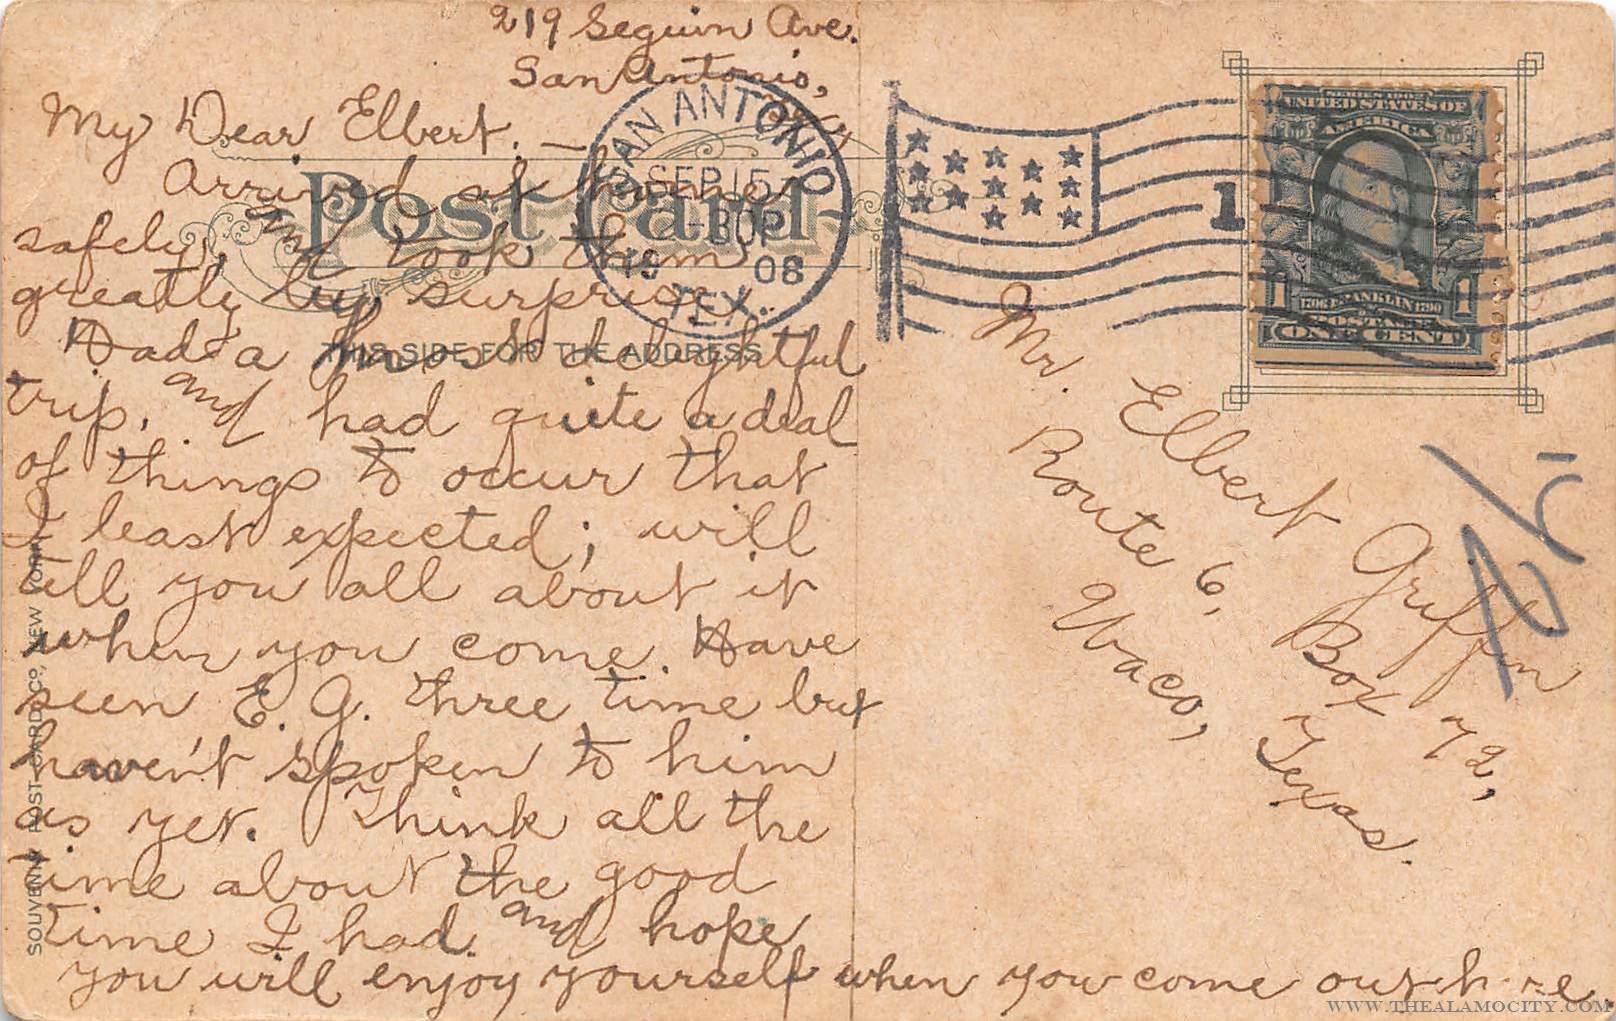 219 Seguin Ave.
San Antonio,
My Dear Elbert. —
Arrived at home
safely, and took them
greatly by surprise.
Had a most delightful
trip, and had quite a deal
of things to occur that
I least expected; will
tell you all about it
when you come. Have
seen E. G. three time but
haven't spoken to him
as yet. Think all the
time about the good
time I had. and hope
you will enjoy yourself when you come out here.
Post Card
THIS SIDE FOR THE ADDRESS
SOUVENIR POST CARD CO., NEW YORK
SAN ANTONIO
SEP 15
-30P
19 08
TEX.
1
SERIES 1902
UNITED STATES OF
AMERICA
1706 FRANKLIN 1790
POSTAGE
1 1
ONE CENT
Mr. Elbert Griffin
Route 6, Box 72,
Waco, Texas.
WWW.THEALAMOCITY.COM